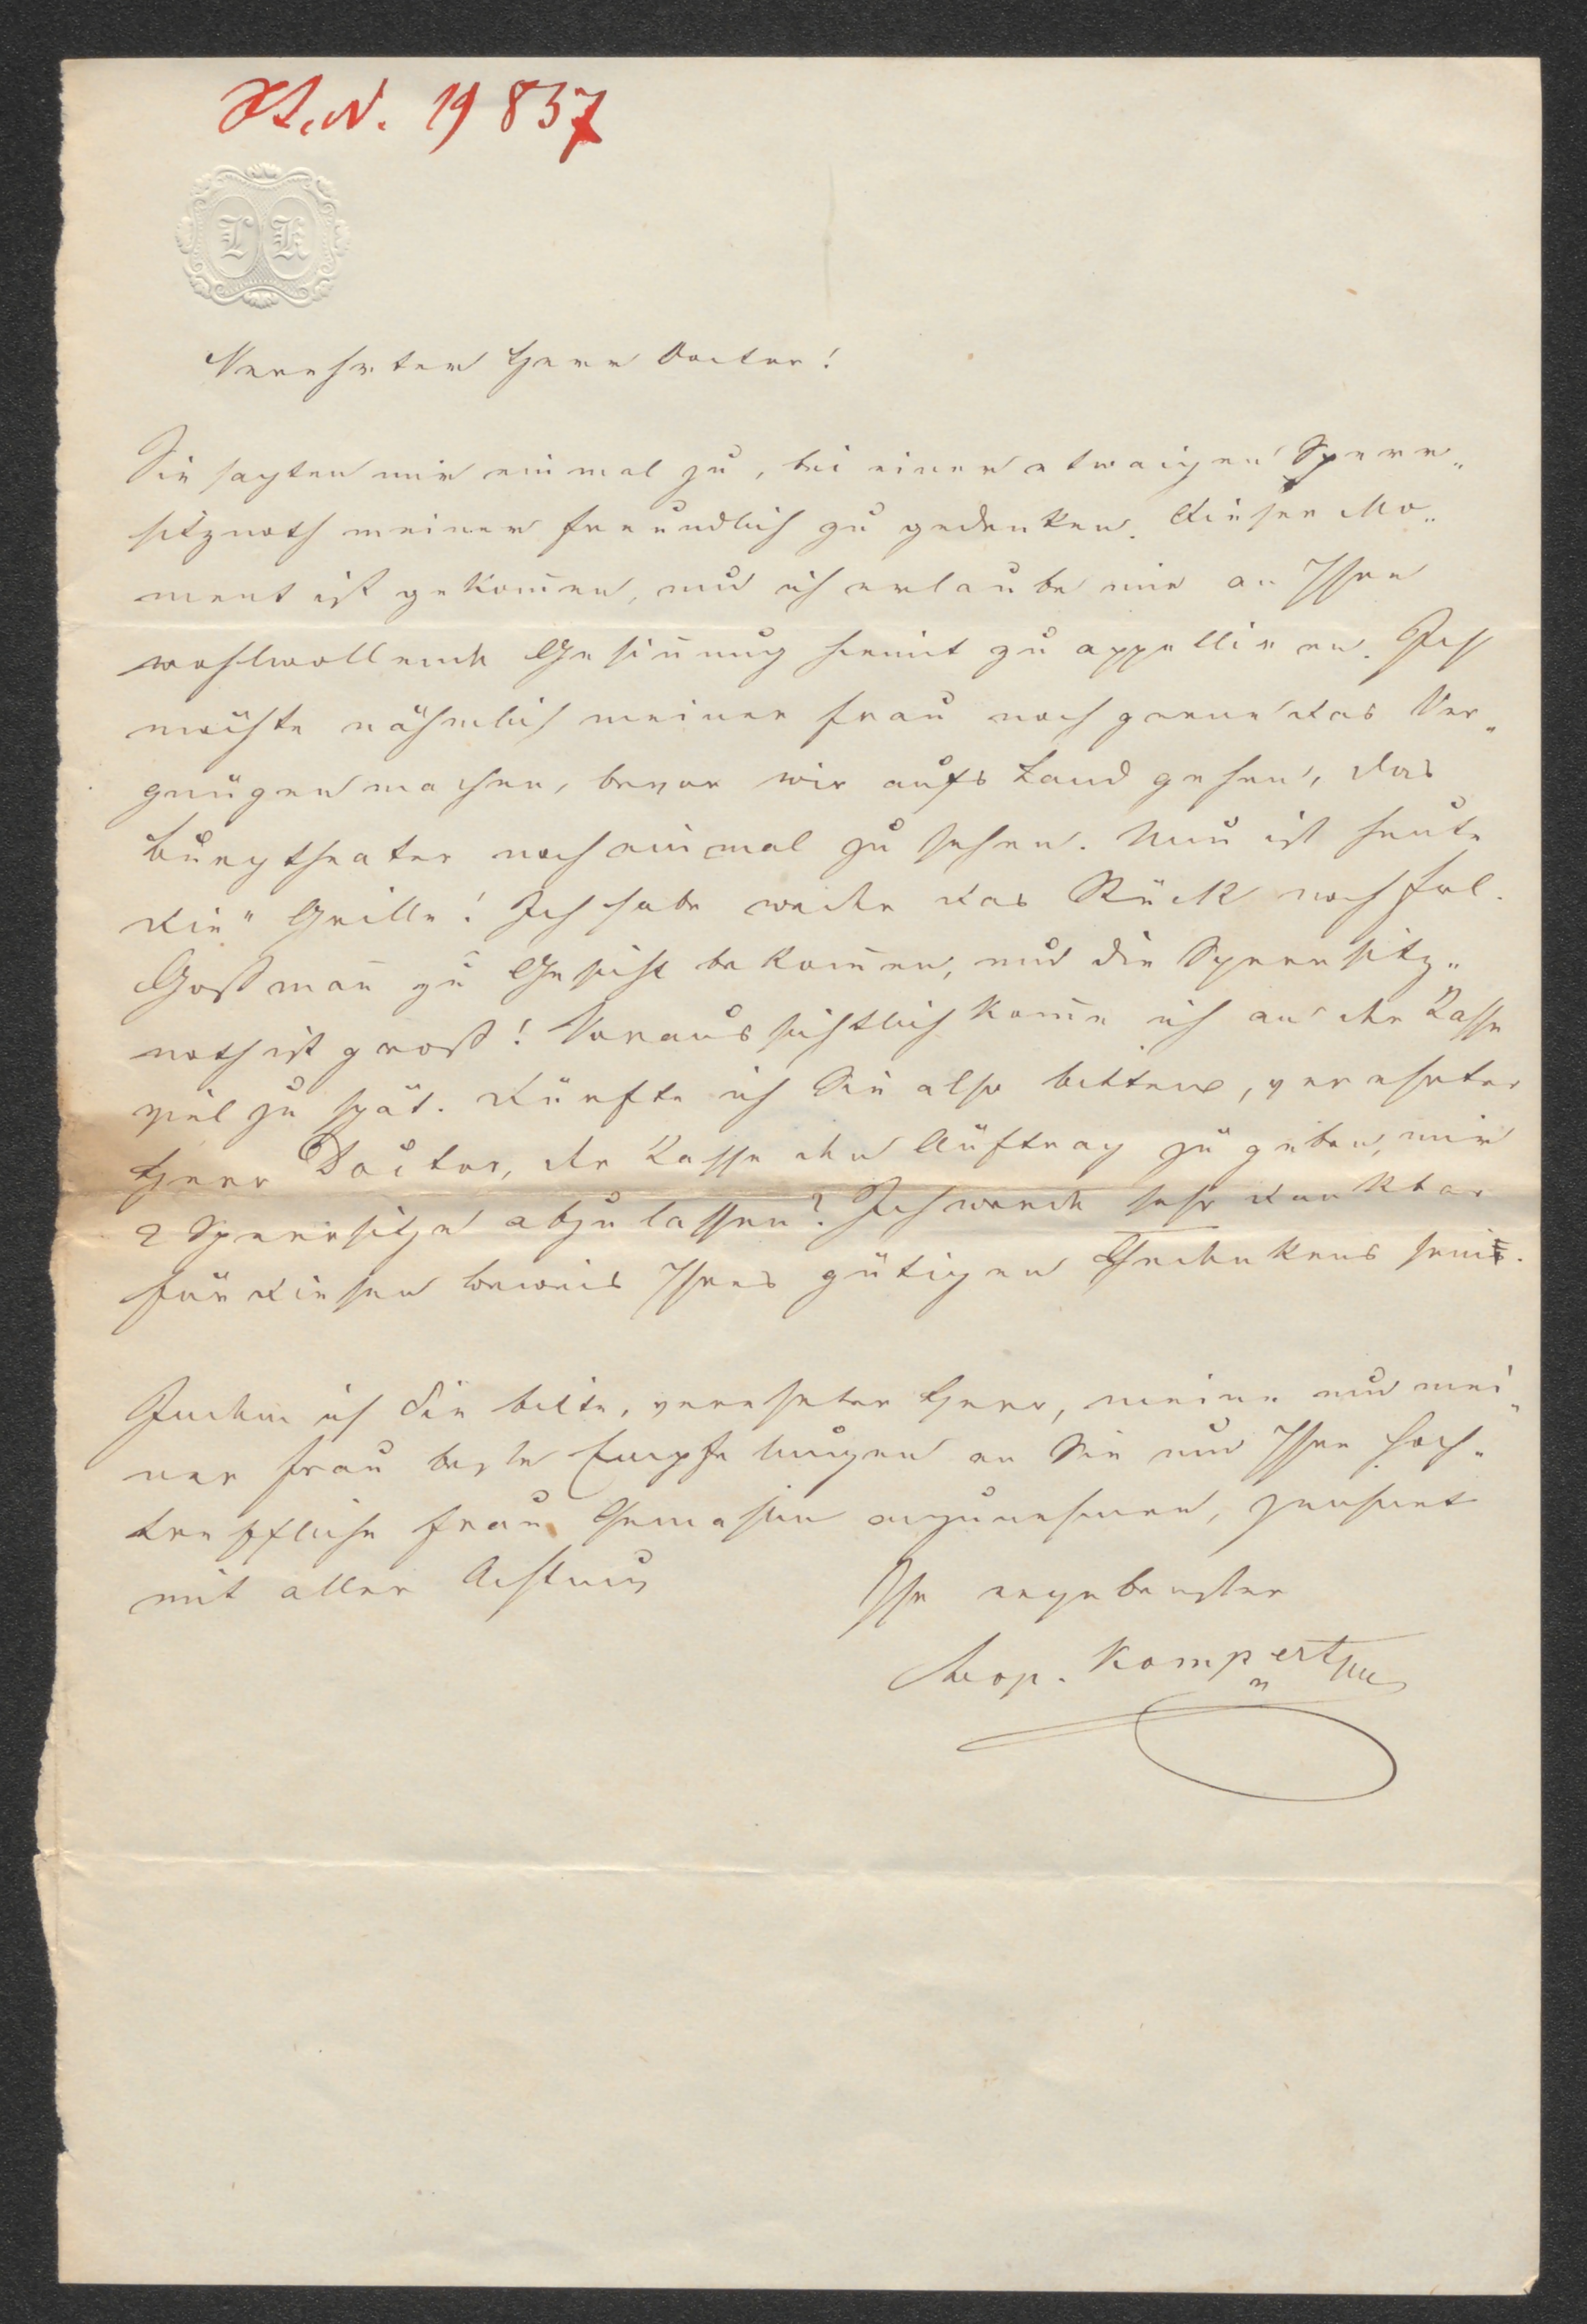 H.I.N. 19837
L K
Verehrter Herr Doctor!
Sie sagten mir einmal zu, bei einer etwaigen Sperr„
sitznoth meiner freundlich zu gedenken. Dieser Mo„
ment ist gekom̅en, und ich erlaube mir an Ihre
wohlwollende Gesin̅ung hiemit zu appelliren. Ich
möchte nähmlich meiner Frau noch gerne das Ver„
gnügen machen, bevor wir aufs Land gehen, das
Burgtheater noch einmal zu sehen. Nun ist heute
die „Grille! Ich habe weder das Stück noch Frl.
Goßman̅ zu Gesicht bekom̅en, und die Sperrsitz„
noth ist groß! Voraussichtlich kom̅e ich an der Kasse
viel zu spät. Dürfte ich Sie also bitten, verehrter
Herr Doctor, der Kasse den Auftrag zu geben, mir
2 Sperrsitze abzulassen? Ich werde sehr dankbar
für diesen Beweis Ihres gütigen Gedenkens sein.
Indem ich Sie bitte, verehrter Herr, meine und mei„
ner Frau beste Empfelungen an Sie und Ihre hoch„
treffliche Frau Gemahlin anzunehmen, zeichnet
mit aller Achtung
Ihr ergebenster
Leop. Kompert